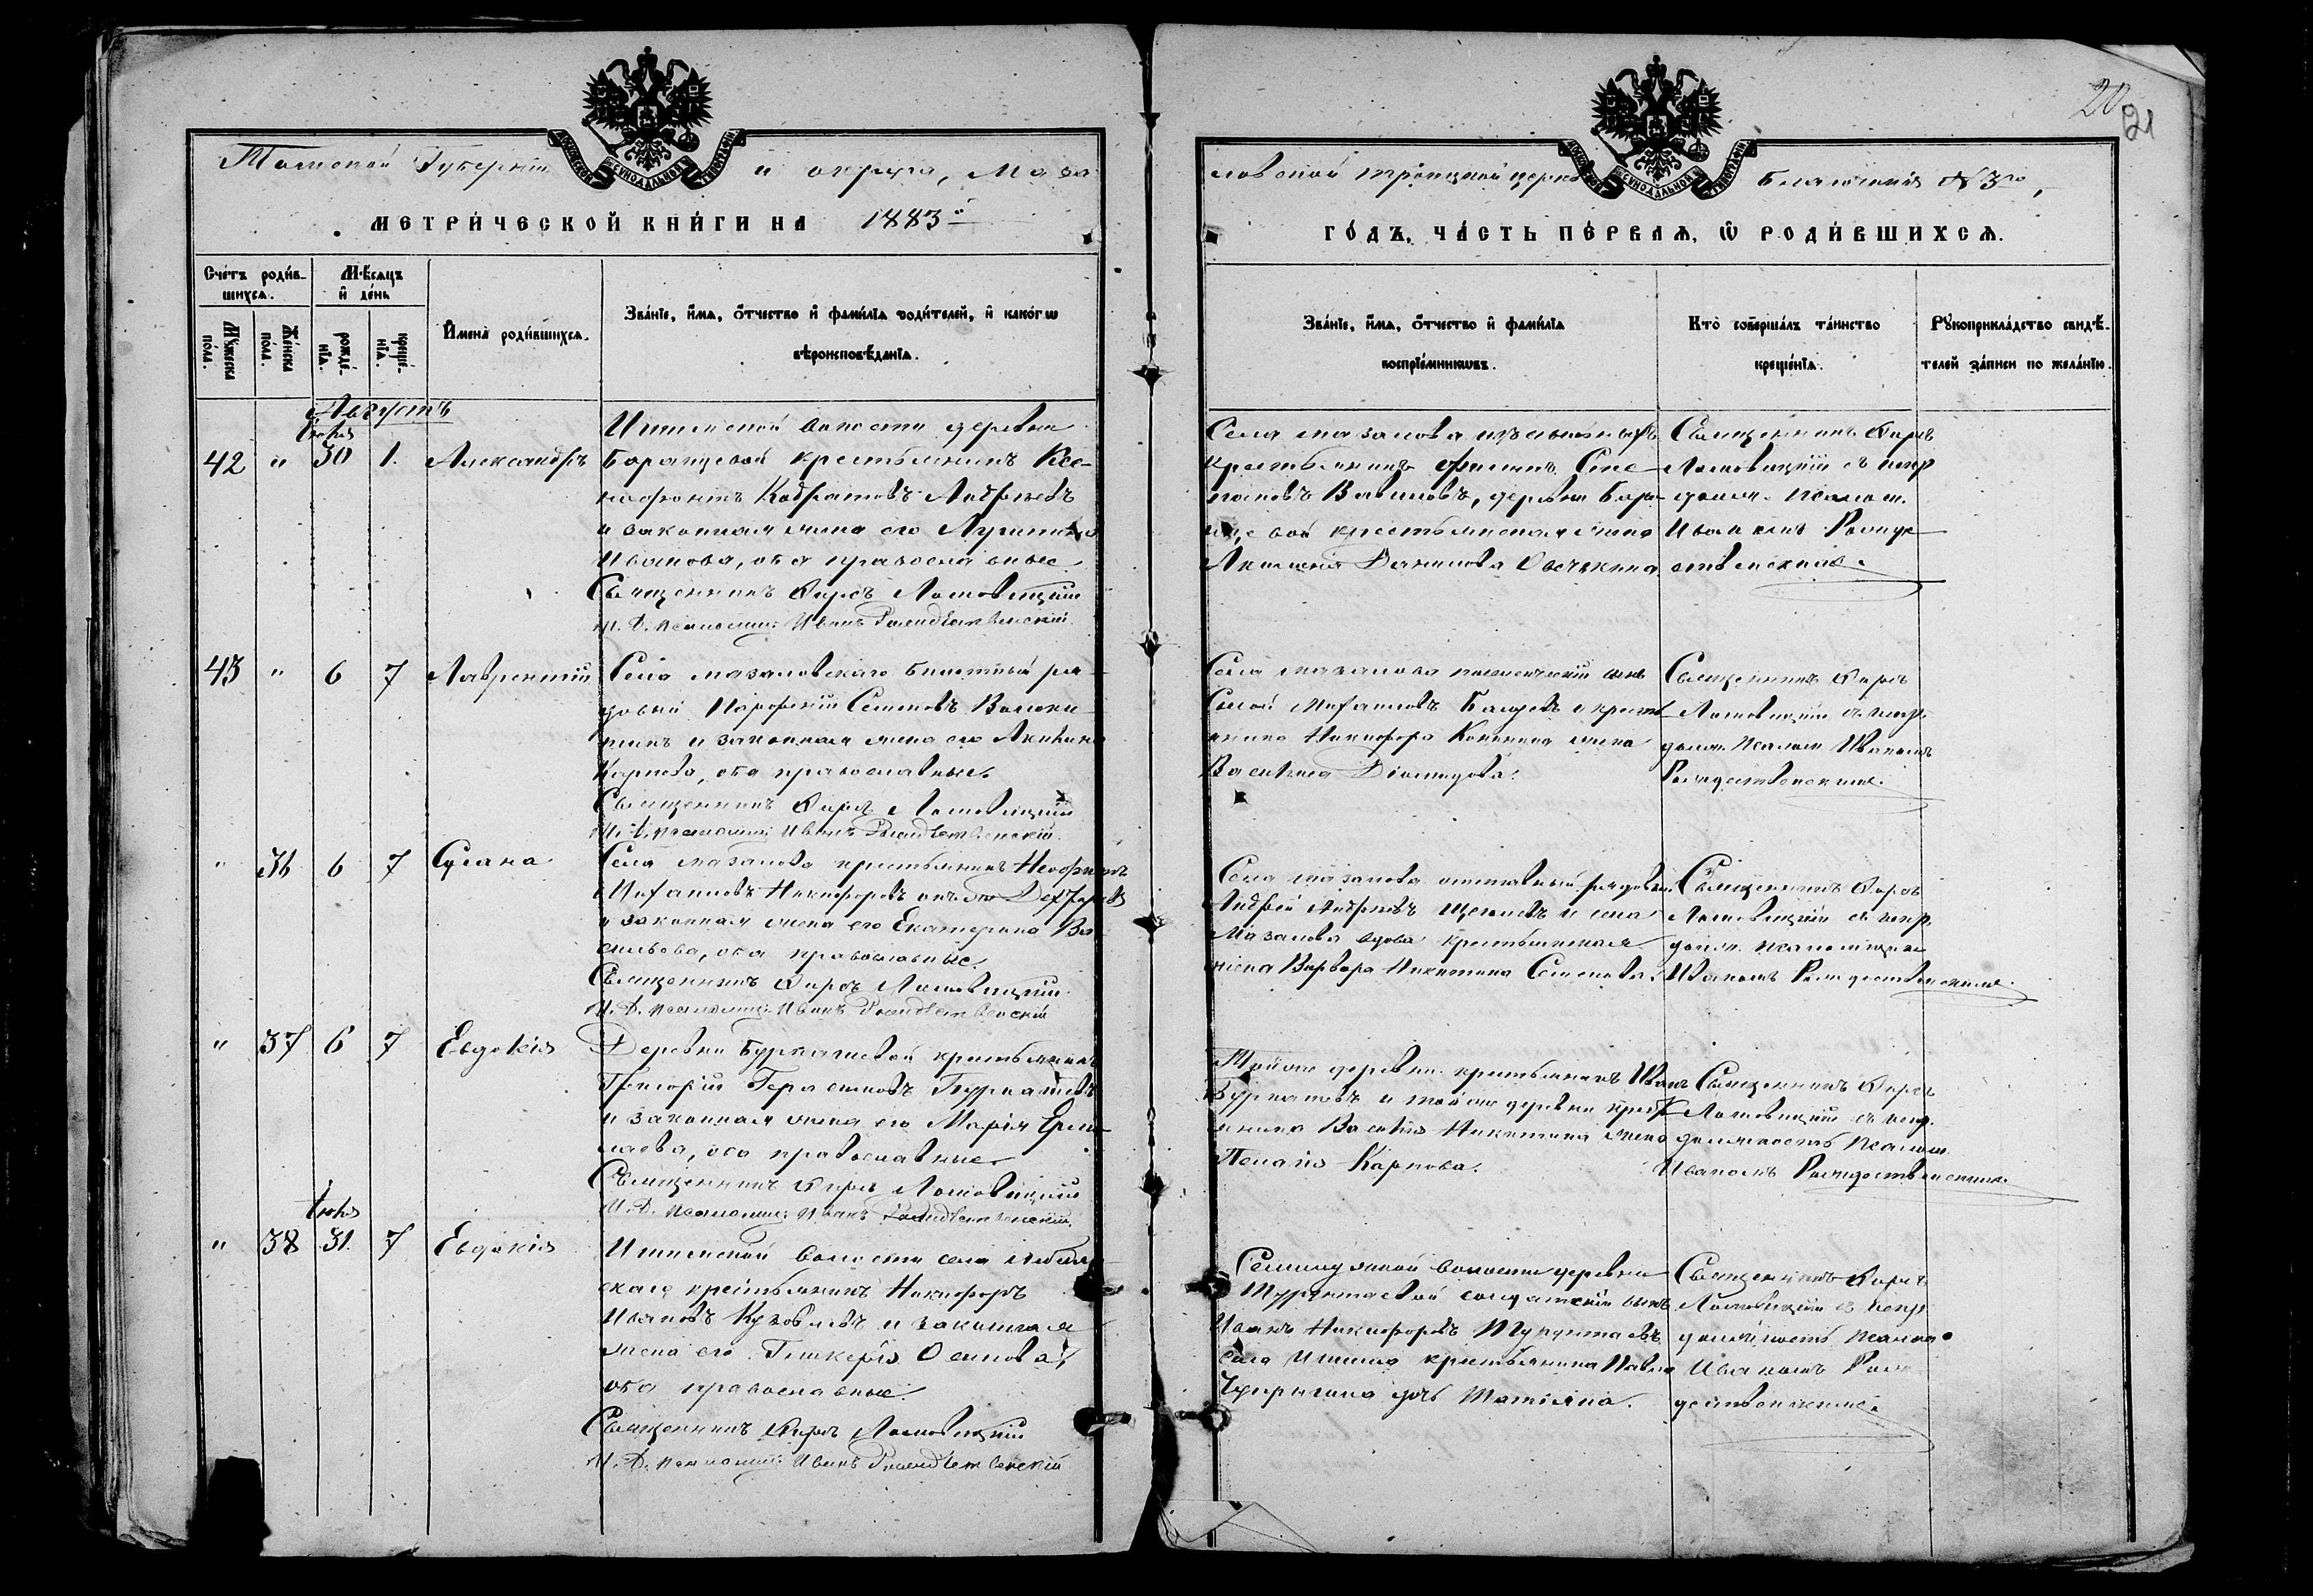 20
21
Томской Губернии и округа, Маза
ловской троицкой церкви Благочинія № 3го,
МЕТРИ́ЧЕСКОЙ КНИ́ГИ НА 1883й
ГО́ДЪ, ЧА́СТЬ ПЕ́РВАѦ, Ѡ҆ РОДИ́ВШИХСѦ.
Сче́тъ роди́в-
шихсѧ.
Мѣ́сѧцъ
и҆ де́нь
Мꙋ́жеска
по́ла.
Же́нска
по́ла.
рожде́-
нїѧ.
креще́-
нїѧ.
И҆мена̀ роди́вшихсѧ.
Зва́нїе, и҆́мѧ, ѻ҆́тчество и҆ фами́лїѧ роди́телей, и҆ како́гѡ
вѣроисповѣ́данїѧ.
Зва́нїе, и҆́мѧ, ѻ҆́тчество и҆ фами́лїѧ
воспрїе́мникѡвъ.
Кто̀ соверша́лъ та́инство
креще́нїѧ.
Рꙋкоприкла́дство свидѣ́-
телей за́писи по жела́нїю.
Августъ
Іюля
42 " 30 1. Александръ
Ишимской волости деревни
Борацевой крестьянинъ Ксе-
нофонтъ Андреевъ
и законная жена его
Иванова, оба православные.
Священникъ Киръ Ломовицкій
И. Д. псаломщ. Иванъ Рождественскій
Села Мазалова
крестьянинъ Филипъ Сте-
пановъ Вавиловъ, деревни Бора-
цевой крестьянская жена
Данилова Овечкина.
Священникъ Киръ
Ломовицкій съ испр.
долж. псалом.
Иваномъ Рожде
ственскимъ.
43 " 6 7 Лаврентій
Села Мазаловскаго билетный ря
довый Парфеній Семеновъ
и законная жена его Акилина
Карпова, оба православные.
Священникъ Киръ Ломовицкій
И. Д. псаломщ. Иванъ Рождественскій
Села Мазалова сынъ
Михаиловъ и крестья
нина Никифора жена
Василиса Діомидова.
Священникъ Киръ
Ломовицкій съ испр.
долж. псалом. Иваномъ
Рождественскимъ.
" 36 6 7 Сусана
Села Мазалова крестьянинъ Неофитъ
Михаиловъ Никифоровъ онъ же
и законная жена его Екатерина Ва
сильева, оба православные.
Священникъ Киръ Ломовицкій
И. Д. псаломщ. Иванъ Рождественскій
Села Мазалова отставный рядовой
Андрей Андреевъ Щегловъ и села
Мазалова вдова крестьянская
жена Варвара Никитина Семенова.
Священникъ Киръ
Ломовицкій съ испр.
долж. псаломщика
Иваномъ Рождественскимъ.
" 37 6 7 Евдокія
Деревни Буркатевой крестьянинъ
Григорій Герасимовъ Буркатевъ
и законная жена его Марія Ермо
лаева, оба православные.
Священникъ Киръ Ломовицкій
И. Д. псаломщ. Иванъ Рождественскій
Той же деревни крестьянинъ Иванъ
Буркатовъ и той же деревни крестья
нина Василія Никитина жена
Пелагія Карпова.
Священникъ Киръ
Ломовицкій съ испр.
должность псалом.
Иваномъ Рождественскимъ.
Іюля
" 38 31. 7 Евдокія
Ишимской волости села
скаго крестьянинъ Никифоръ
Ивановъ и законная
жена его Гликерія Осипова,
оба православные.
Священникъ Киръ Ломовицкій
И. Д. псаломщ. Иванъ Рождественскій
Семилужной волости деревни
Турунтаевой солдатскій сынъ
Иванъ Никифоровъ Турунтаевъ
села Ишима крестьянина Павла
дочь Татіана.
Священникъ Киръ
Ломовицкій съ испр.
должность псалом.
Иваномъ Рож
дественскимъ.